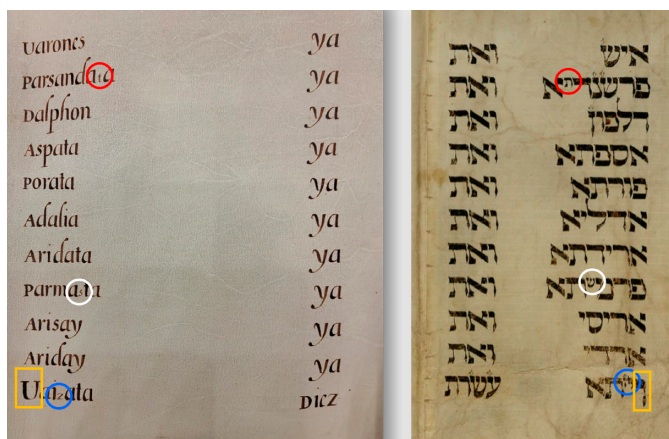 Uarones ya
Parsandata ya
Dalphon ya
Aspata ya
Porata ya
Adalia ya
Aridata ya
Parmasta ya
Arisay ya
Ariday ya
Uaizata DIEZ
איש ואת
פרשנדתא ואת
דלפון ואת
אספתא ואת
פורתא ואת
אדליא ואת
ארידתא ואת
פרמשתא ואת
אריסי ואת
ארדי ואת
ויזתא עשרת